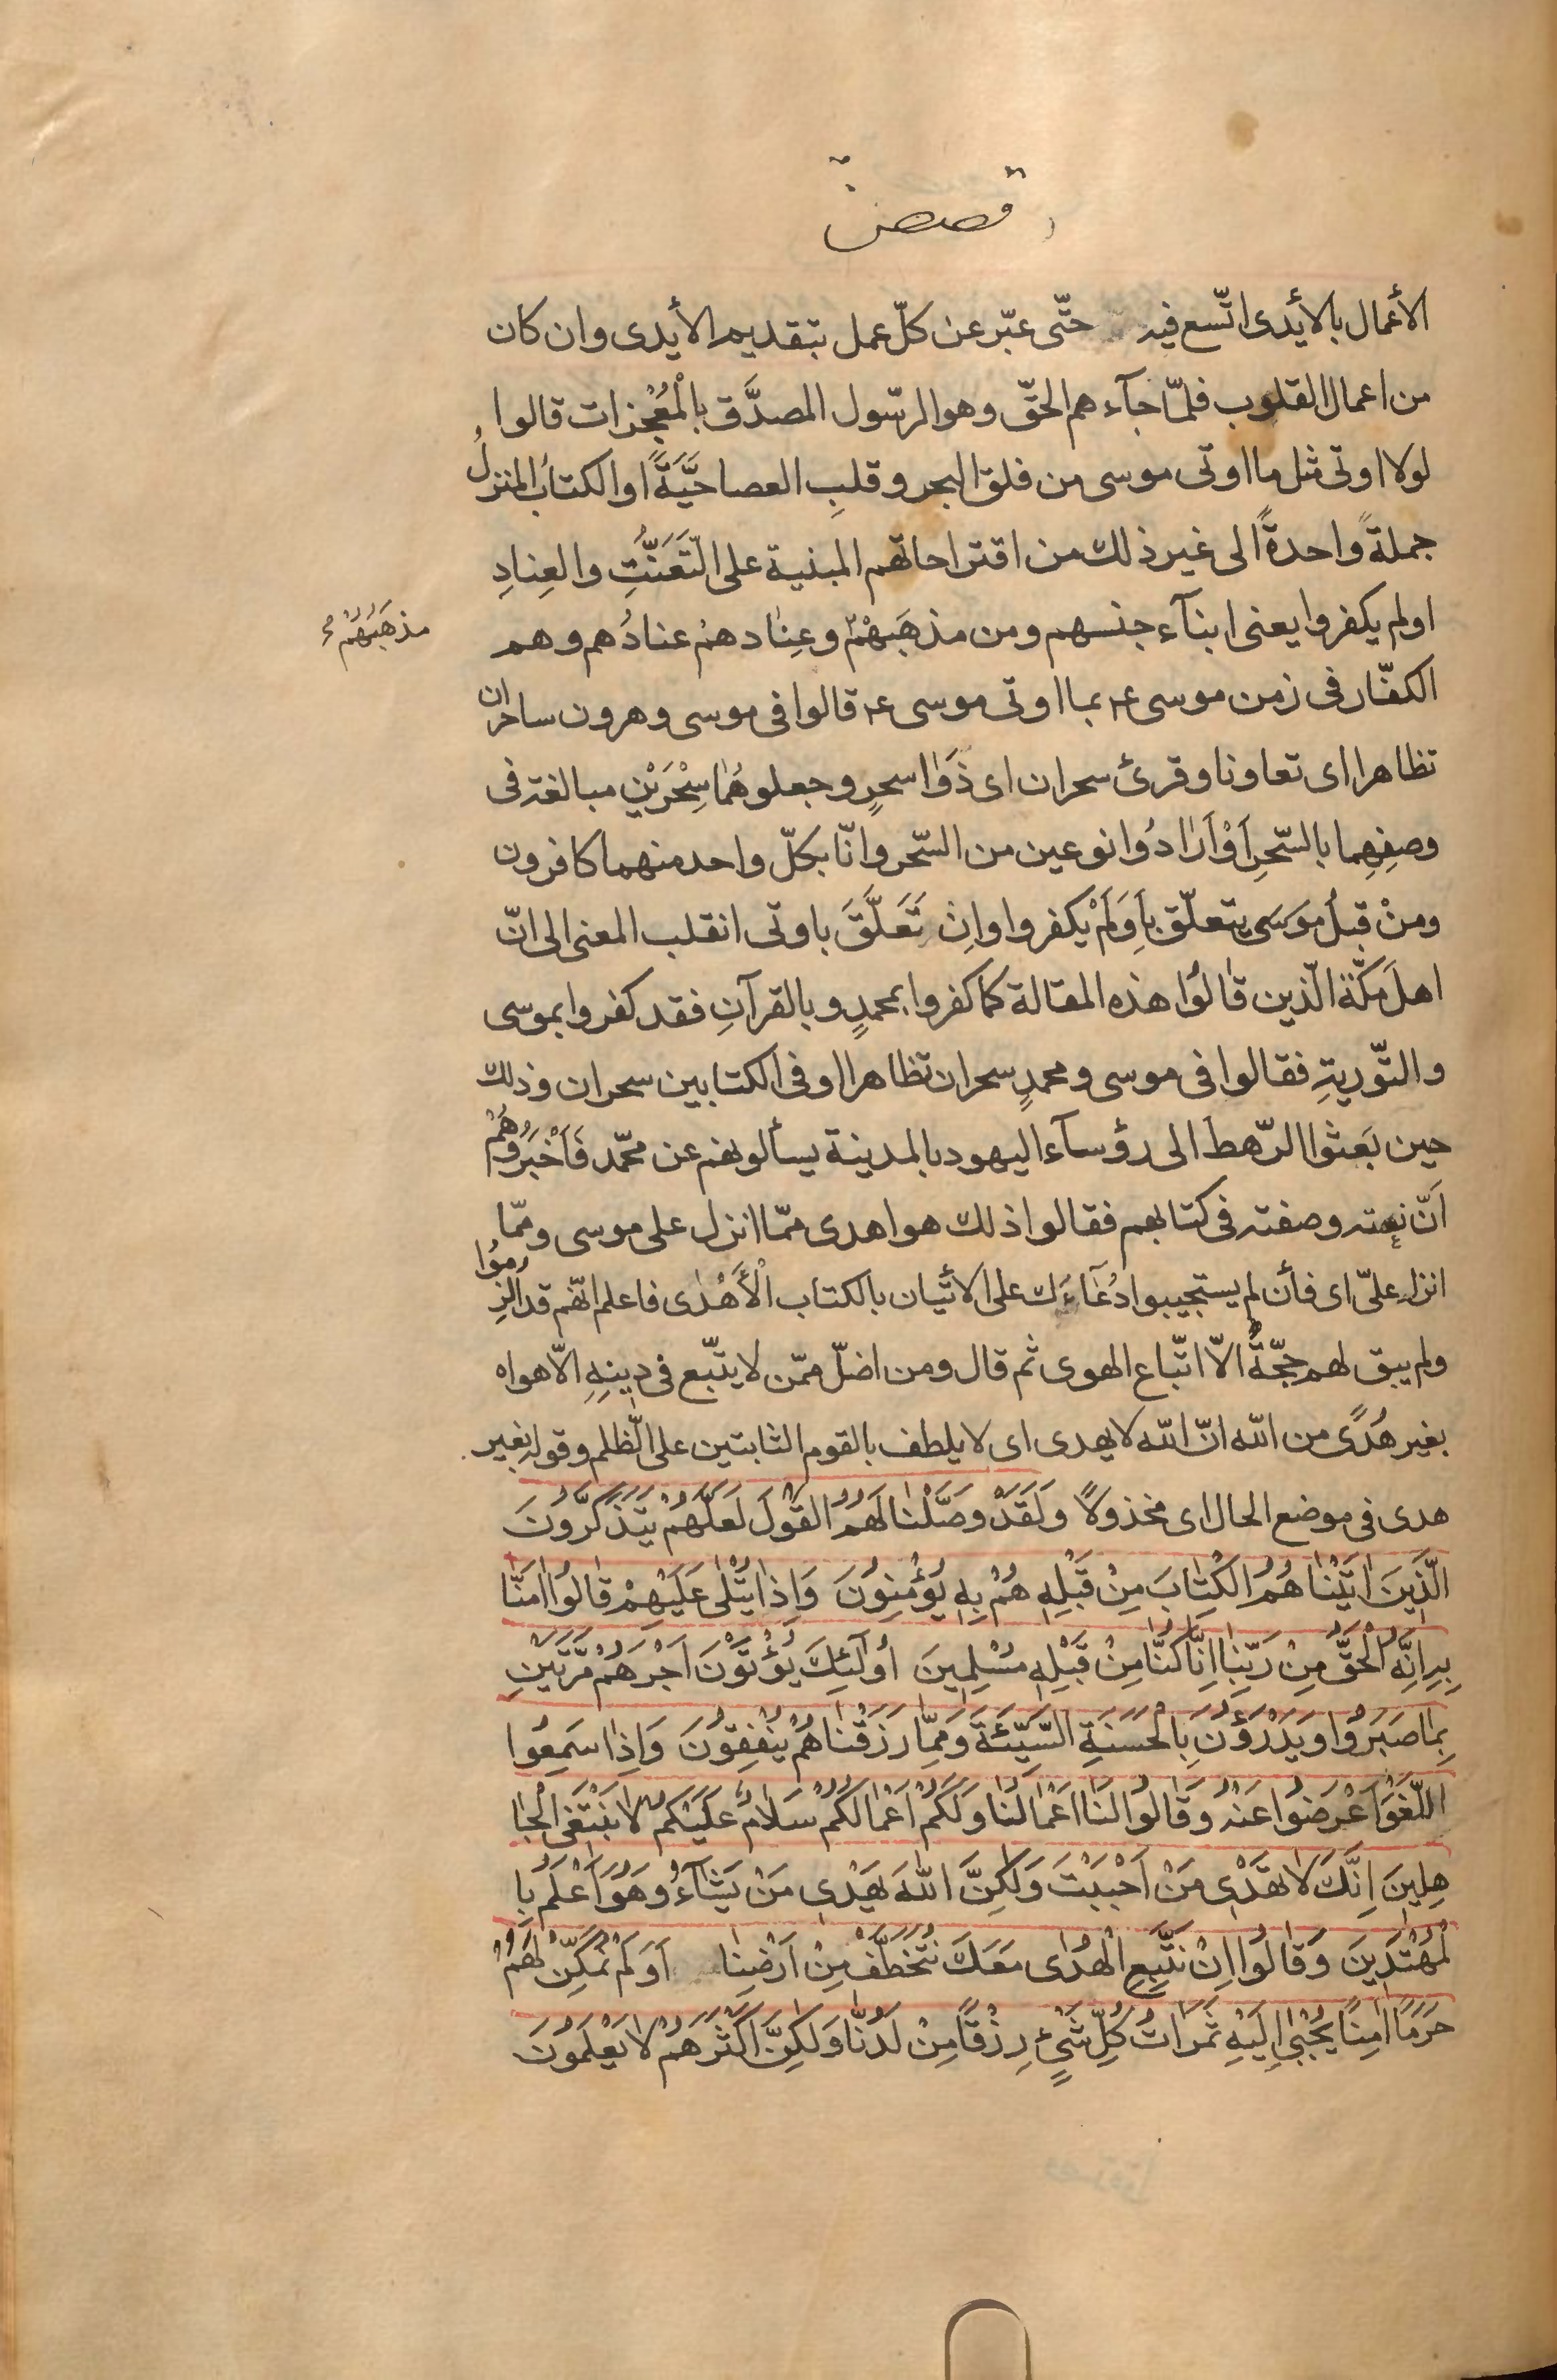 قصص
الأعمال بالأيدى اتّسع فيه حتّى عبّر عن كلّ عمل بتقديم الأيدى وان كان
من اعمال القلوب فلمّا جآءهم الحقّ وهو الرّسول المصدَّق بالْمُعْجزات قالوا
لولا اوتى مثل ما اوتى موسى من فلق البحر وقلبِ العصا حَيَّةً او الكتابُ المنزلُ
جملةً واحدةً الى غير ذلك من اقتراحاتهم المبنية على التَّعَنُّتِ والعِنادِ
اولم يكفروا يعنى ابنآء جنسهم ومن مذهَبَهُمْ وعِنادهمْ عنادُهم وهم
مذهَبُهُمْ
الكفّار فى زمن موسى ع بما اوتى موسى ع قالوا فى موسى وهرون ساحران
تظاهرا اى تعاونا وقرئ سحران اى ذَوَا سحرٍ وجعلوهُمَا سِحْرَيْنِ مبالغة فى
وصفِهِما بالسّحرِ اَوْ اَرَادُوا نوعين من السّحر وانّا بكلّ واحد منهما كافرون
ومنْ قبلُ موسَى يتعلّق بِاَوَلَمْ يكفروا واِنْ تَعَلَّقَ باوتى انقلب المعنى الى انّ
اهلَ مكّة الّذين قالُوا هذه المقالة كما كفروا بمحمدٍ وبالقرآنِ فقد كفروا بموسى
والتّوريةِ فقالوا فى موسى ومحمدٍ سحران تظاهرا او فى الكتابين سحران وذلك
حين بَعَثوا الرّهطَ الى رؤسآء اليهود بالمدينة يسألونهم عن محمّد فَاَخْبَرُوهُمْ
اَنّ نعته وصفته فى كتابهم فقالوا ذلك هو اهدى ممّا انزل على موسى وممّا
انزل علىّ اى فأن لم يستجيبوا دُعَآءَك على الاتيان بالكتاب الْأَهْدٰى فاعلم انّهم قد اُلزِمُوا
ولم يبق لهم حجّةٌ الّا اتّباع الهوى ثم قال ومن اضلّ ممّن لا يتّبع فى دينِهِ الّا هواه
بغير هُدًى من اللّه انّ اللّه لا يهدى اى لا يلطف بالقوم الثابتين على الظّلم وقوله بغير
هدى فى موضع الحال اى مخذولًا وَلَقَدْ وَصَّلْنٰا لَهُمُ الْقَوْلَ لَعَلَّهُمْ يَتَذَكَّرُونَ
الَّذِينَ اٰتَيْنٰاهُمُ الْكِتٰابَ مِنْ قَبْلِهِ هُمْ بِهِ يُؤْمِنُونَ وَاِذٰا يُتْلٰى عَلَيْهِمْ قٰالُوا اٰمَنّٰا
بِهِ اِنَّهُ الْحَقُّ مِنْ رَبِّنٰا اِنّٰا كُنّٰا مِنْ قَبْلِهِ مُسْلِمِينَ اُولٰئِكَ يُؤْتَوْنَ اَجْرَهُمْ مَرَّتَيْنِ
بِمٰا صَبَرُوا وَيَدْرَؤُنَ بِالْحَسَنَةِ السَّيِّئَةَ وَمِمّٰا رَزَقْنٰاهُمْ يُنْفِقُونَ وَاِذٰا سَمِعُوا
اللَّغْوَ اَعْرَضُوا عَنْهُ وَقٰالُوا لَنٰا اَعْمٰالُنٰا وَلَكُمْ اَعْمٰالُكُمْ سَلٰامٌ عَلَيْكُمْ لٰا نَبْتَغِى الْجٰا
هِلِينَ اِنَّكَ لٰا تَهْدِى مَنْ اَحْبَبْتَ وَلٰكِنَّ اللّٰهَ يَهْدِى مَنْ يَشٰآءُ وَهُوَ اَعْلَمُ بِا
لْمُهْتَدِينَ وَقٰالُوا اِنْ نَتَّبِعِ الْهُدٰى مَعَكَ نُتَخَطَّفْ مِنْ اَرْضِنٰا اَوَلَمْ نُمَكِّنْ لَهُمْ
حَرَمًا اٰمِنًا يُجْبٰى اِلَيْهِ ثَمَرٰاتُ كُلِّ شَىْءٍ رِزْقًا مِنْ لَدُنّٰا وَلٰكِنَّ اَكْثَرَهُمْ لٰا يَعْلَمُونَ